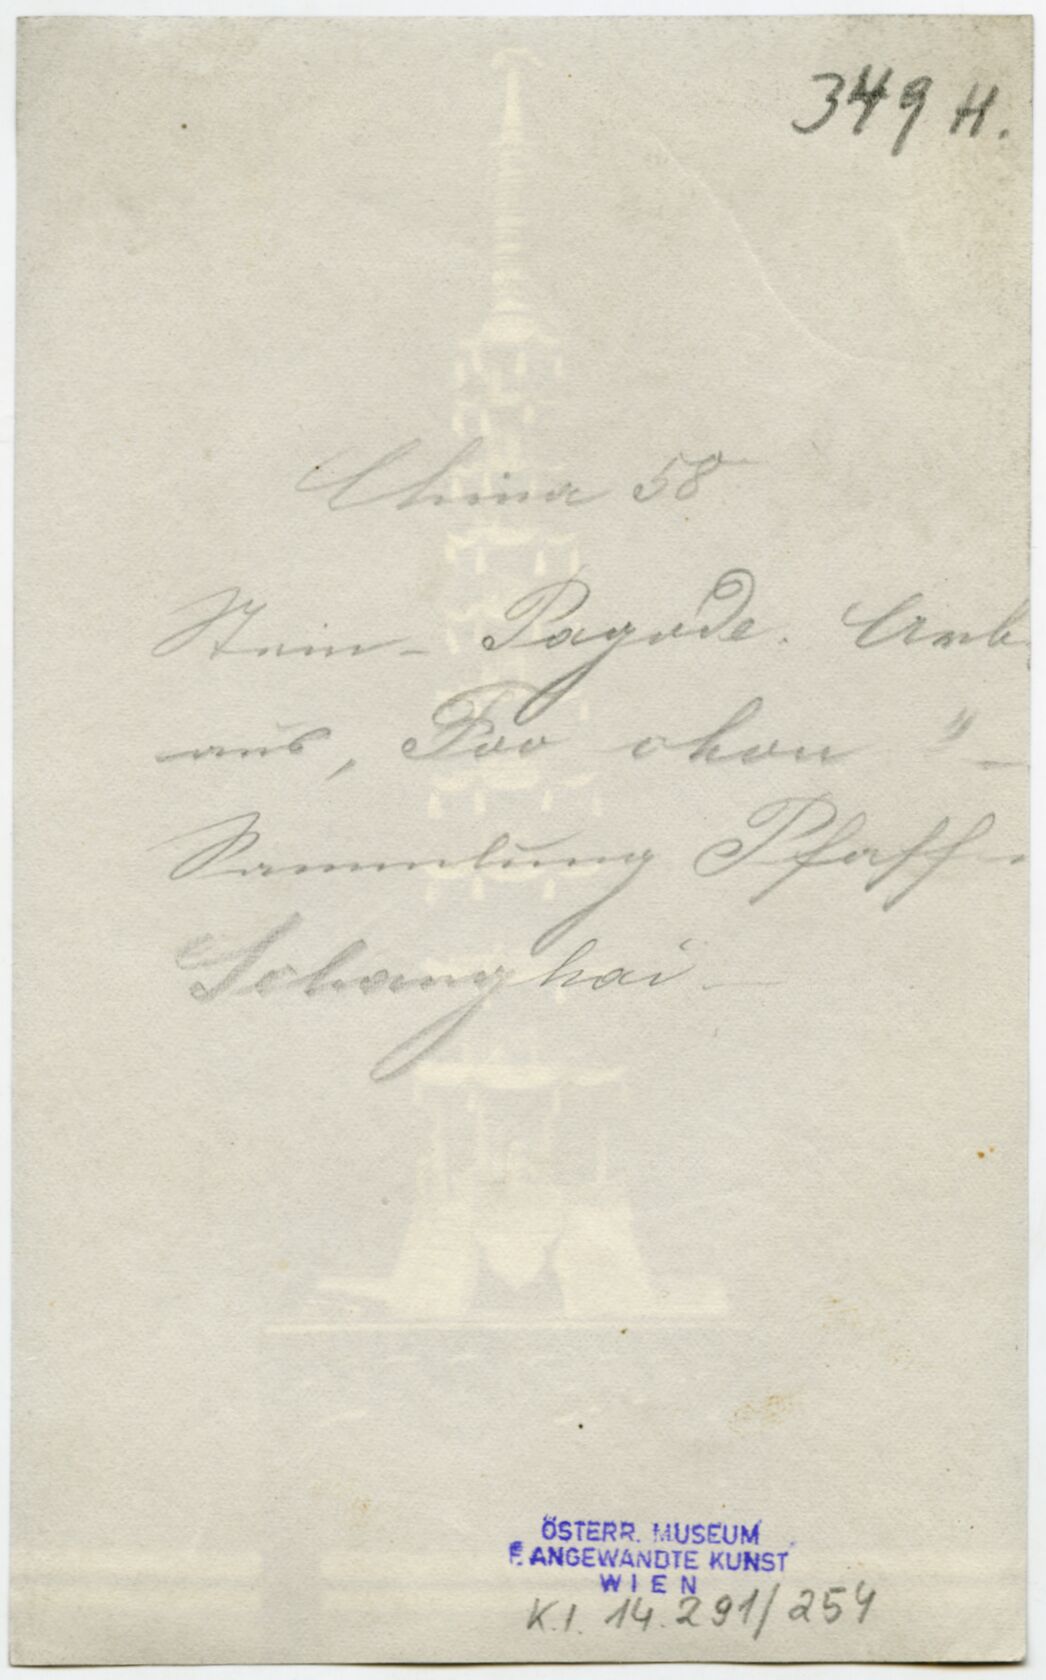 349 H.
China 58
Stein - Pagode. Arb
aus „Foo chow" -
Sammlung Pfaff -
Schanghai -
ÖSTERR. MUSEUM
F. ANGEWANDTE KUNST
WIEN
K.I. 14.291/254